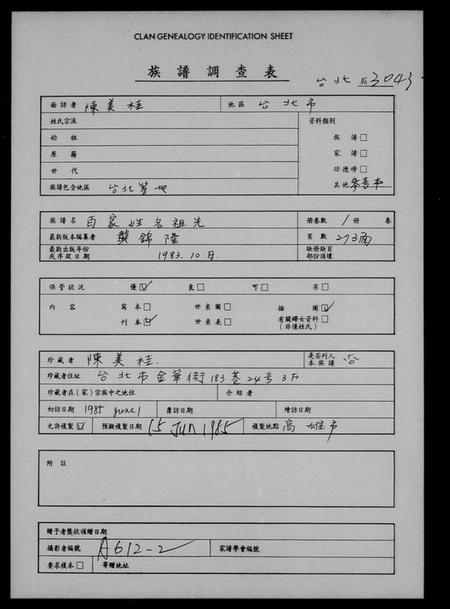 CLAN GENEALOGY IDENTIFICATION SHEET
族譜調查表
台北 3043
面訪者 陳美桂 地區 台北市
姓氏宗派 資料類別
始祖 族譜□
原籍 家譜□
世代 功德榜□
族譜包含地區 台北等地 其他 參考本
族譜名 百家姓名祖先 冊卷數 1冊 卷
最新版本編纂者 錦隆 頁數 273面
最新出版年份或序跋日期 1983.10月. 缺冊缺頁部份損壞
保管狀況 優☑ 良□ 可□ 劣□
內容 寫本□ 世系圖□ 插圖☑
刊本☑ 世系表□ 有關婦女資料□(非僅姓氏)
珍藏者 陳美桂. 是否列入本族譜 否
珍藏者住址 台北市金華街183巷24号3F
珍藏者在(家)宗族中之地位 介紹者
初訪日期 1985 June 1 覆訪日期 續訪日期
允許複製☑ 預擬複製日期 15 JUN 1985 複製地點 高雄市
附註
贈予者獎狀頒贈日期
攝影者編號 A612-2 家譜學會編號
要求複本□ 寄贈地址